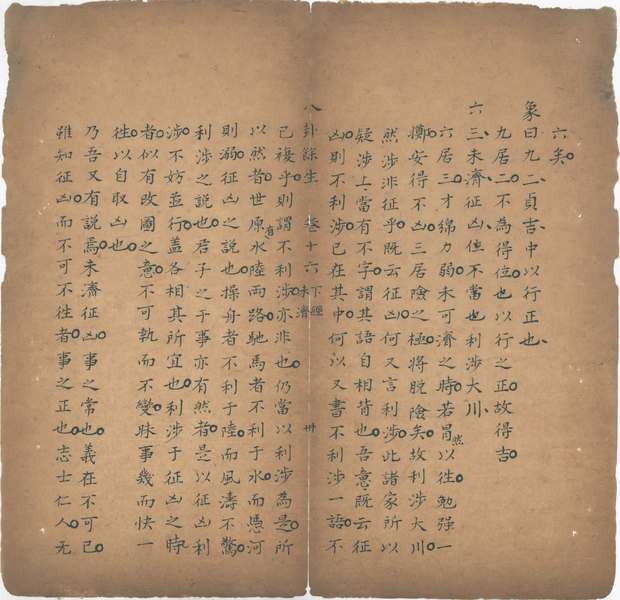 六矣
象曰九二貞吉中以行正也
九居二不為得位也以行之正故得吉
六三未濟征凶位不當也利涉大川
六居三才綿力弱未可濟之時若冒然以徃勉强一
擲安得不凶三居險之極將脫險矣故利涉大川
然涉非征乎既云征凶何又言利涉此諸家所以
疑涉上當有不字謂其語自相背也吾意既云征
凶則不利涉已在其中何以又書不利涉一語不
八卦餘生 卷十六 下經 未濟 卅
已複乎則謂不利涉亦非也仍當以利涉為是所
以然者世原有水陸兩路馳馬者不利于水而慿河
則溺征凶之說也操舟者不利于陸而風濤不驚
利涉之說也君子之于事亦有然者是以征凶利
涉不妨並行蓋各相其所宜也利涉于征凶之時
者似有改圖之意不可執而不變昧事幾而快一
徃以自取凶也
乃吾又有說焉未濟征凶事之常也義在不可已
雖知征凶而不可不徃者事之正也志士仁人无